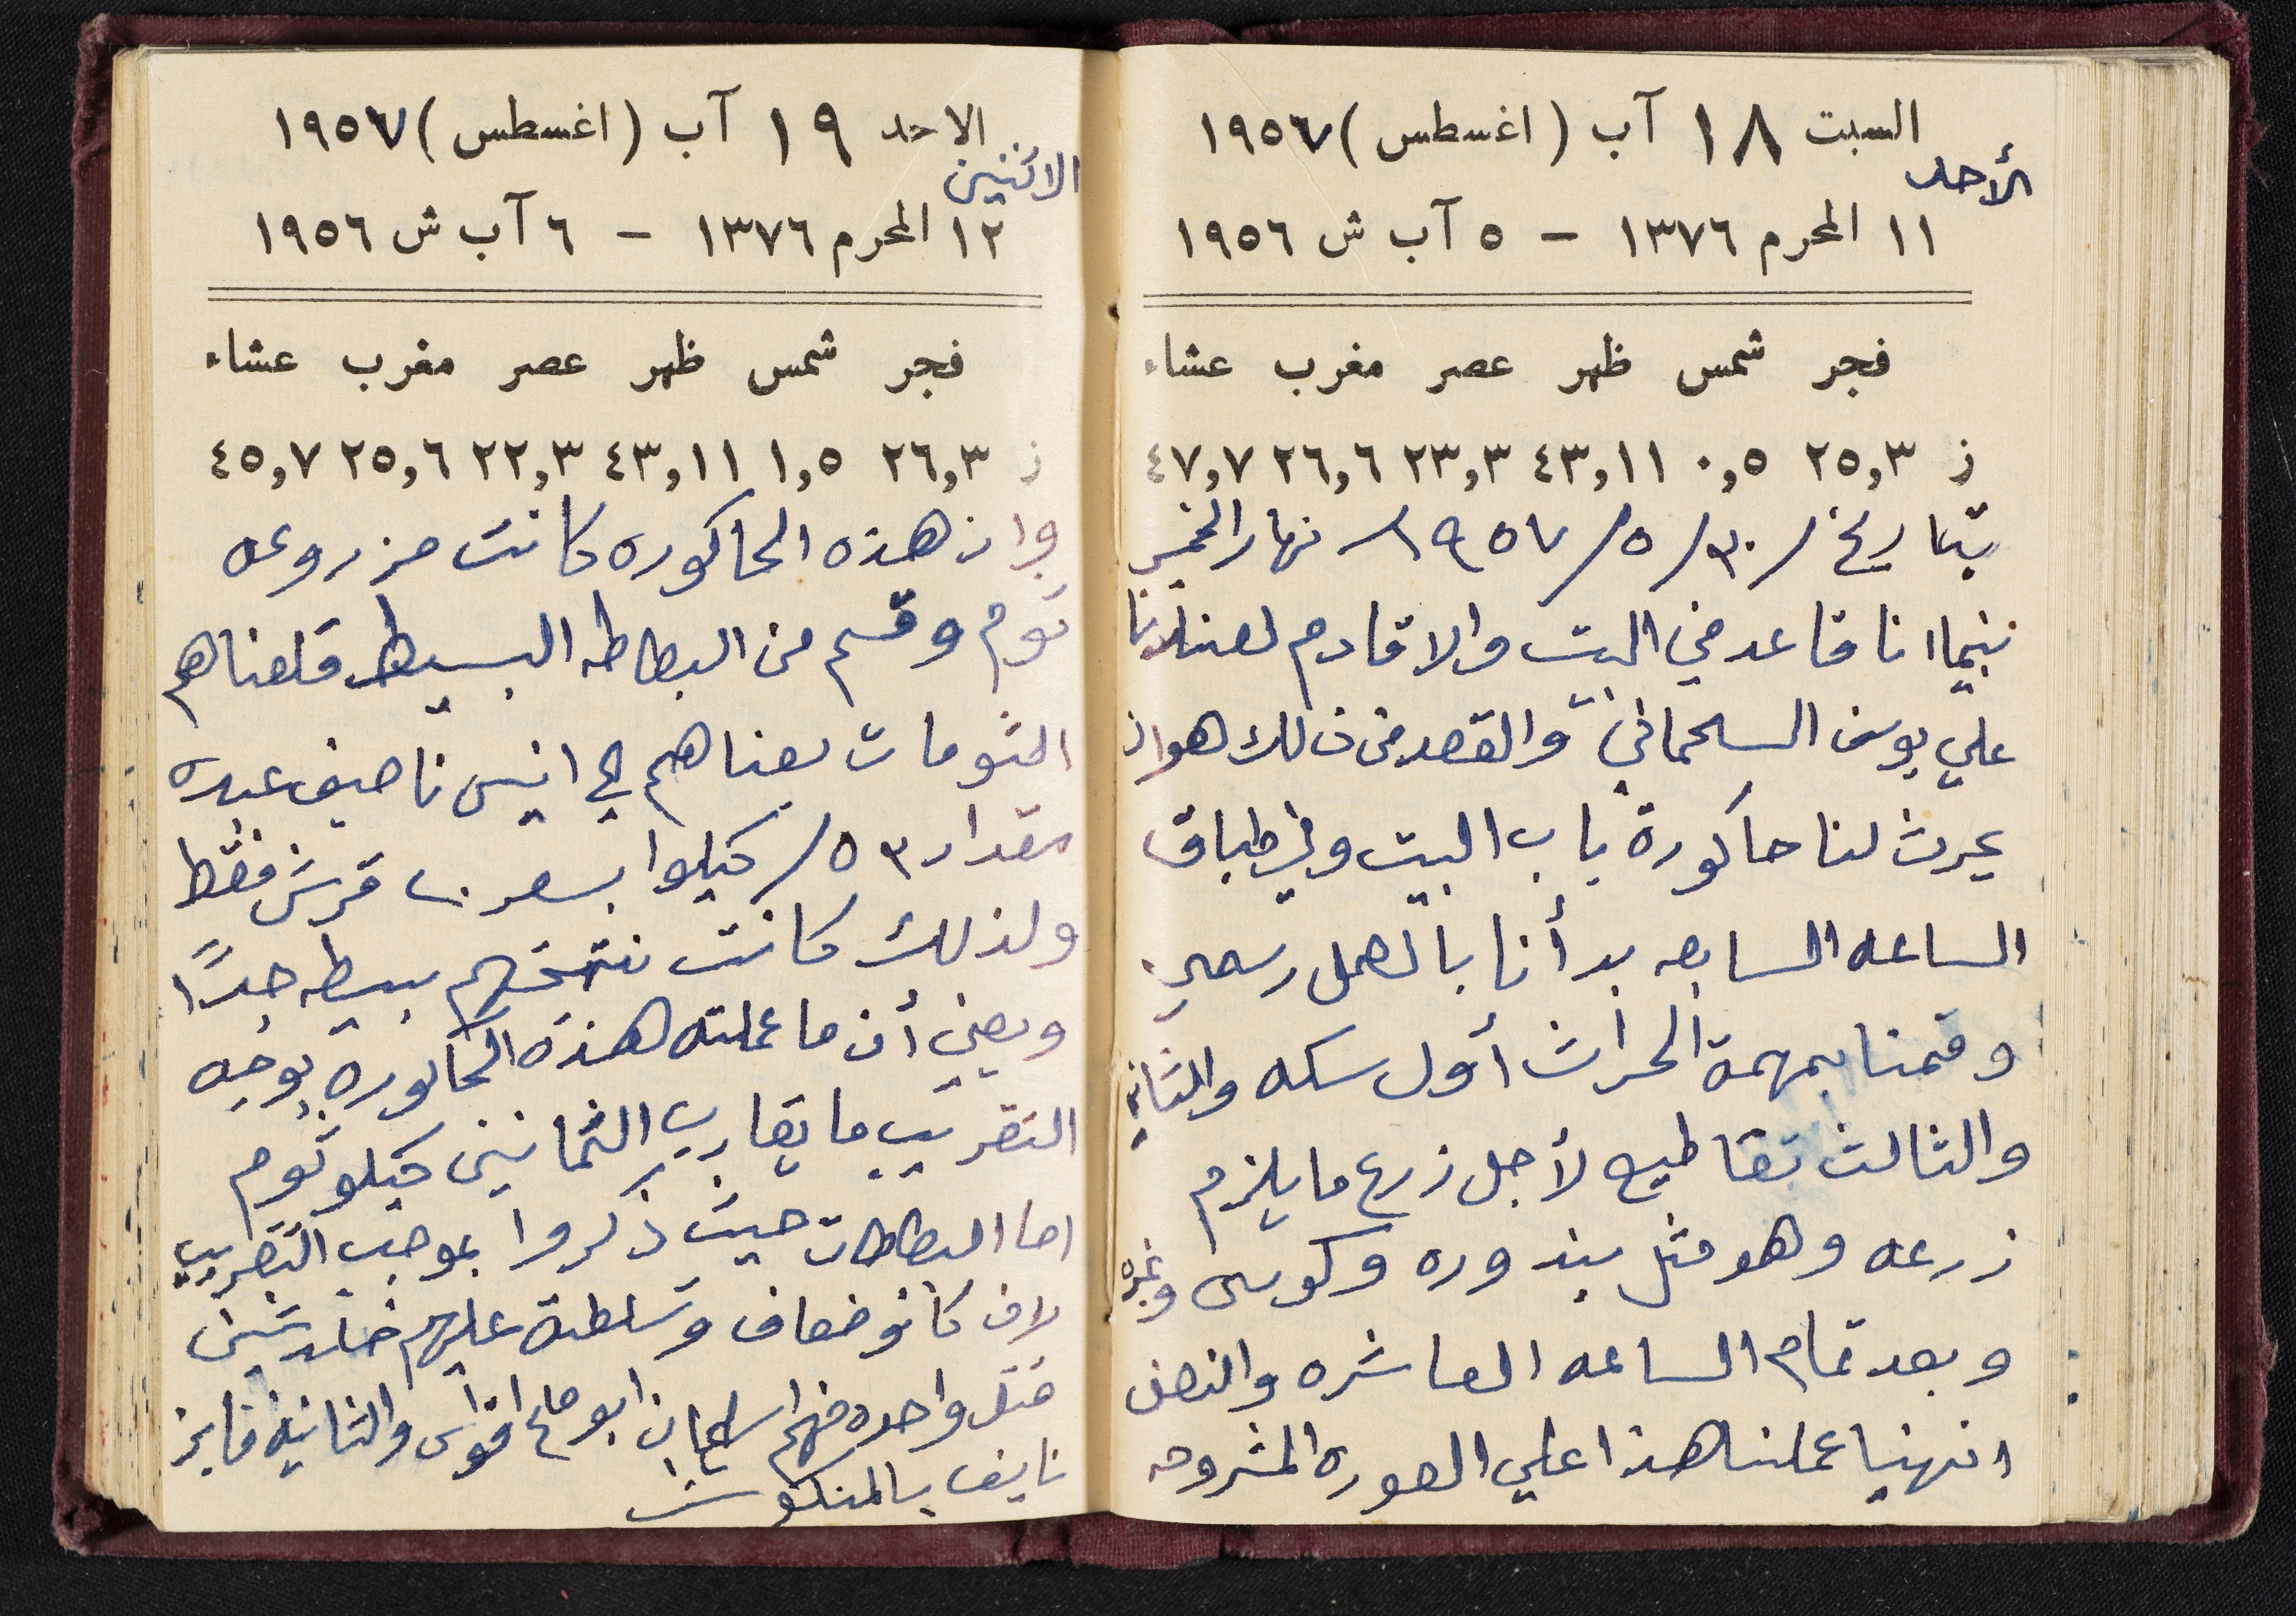 السبت ١٨ آب (اغسطس) ١٩٥٧
الأحد
١١ المحرم ١٣٧٦ – ٥ آب ش ١٩٥٦
فجر شمس ظهر عصر مغرب عشاء
ز ٢٥,٣ ٠,٥ ٤٣,١١ ٢٣,٣ ٢٦,٦ ٤٧,٧
بتاريخ /٣٠/٥/١٩٥٧ نهار الخميس
بينما انا قاعد في البيت والا قادم لعندنا
علي يوسف السلحماني والقصد من ذلك هو ان
يحرث لنا حاكورة باب البيت وفي طباق
الساعه السابعه بدأنا بالعمل رسمي
وقمنا بمهمة الحراث أول سكه والثاني
والثالث تقاطيع لأجل زرع ما يلزم
زرعه وهو مثل بندوره وكوسى وغيره
وبعد تمام الساعه العاشره والنصف
انهينا عملنا هذا علي الصوره المشروحه
الاحد ١٩ آب (اغسطس) ١٩٥٧
الاثنين
١٢ المحرم ١٣٧٦ – ٦ آب ش ١٩٥٦
فجر شمس ظهر عصر مغرب عشاء
ز ٢٦,٣ ١,٥ ٤٣,١١ ٢٢,٣ ٢٥,٦ ٤٥,٧
وان هذه الحاكوره كانت مزروعه
توم وقسم من البطاطه البسيط قلعناهم
التومات بعناهم الي انيس ناصيف عبده
مقدار ٥٣/ كيلوا بسعر قرش فقط
ولذلك كانت نتيجتهم بسيطه جدًا
ويعني أن ما عملته هذه الحاكوره بوجه
التقريب ما يقارب الثمانين كيلو توم
اما البطاطات حيث ذكروا بموجب التقريب
لان كانو ضعاف وتسلطة عليهم خلدتين
قتل واحده منهم سليمان ابو ملح اقواس والثانية فايز
نايف بالمنكوش